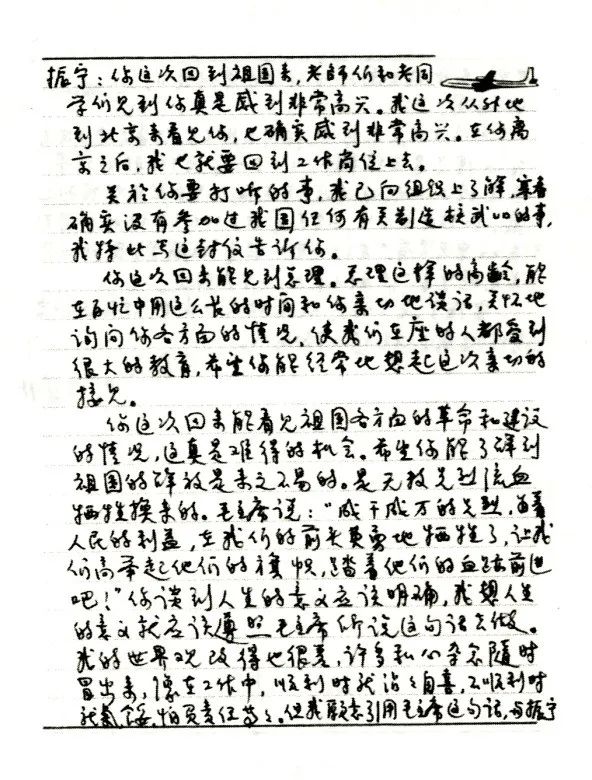 振宁：你这次回到祖国来，老師们和老同
学们见到你真是感到非常高兴。我这次从外地
到北京来看见你，也确实感到非常高兴。在你离
京之后，我也就要回到工作岗位上去。
关於你要打听的事，我已向组织上了解，寒春
确实没有参加过我国任何有关制造核武口的事，
我特此写这封信告诉你。
你这次回来能见到总理。总理这样的高龄，能
在百忙中用这么长的时间和你亲切地谈话，关怀地
询问你各方面的情况，使我们在座的人都受到
很大的教育，希望你能经常地想起这次亲切的
接见。
你这次回来能看见祖国各方面的革命和建设
的情况，这真是难得的机会。希望你能了解到
祖国的解放是来之不易的。是无数先烈流血
牺牲换来的。毛主席说："成千成万的先烈，为着
人民的利益，在我们的前头英勇地牺牲了，让我
们高举起他们的旗帜，踏着他们的血迹前进
吧！"你谈到人生的意义应该明确，我想人生
的意义就应该遵照毛主席所说这句话去做。
我的世界观改得也很差，许多私心杂念随时
冒出来，像在工作中，顺利时就沾沾自喜，不顺利时
就氣餒，怕负责任等等。但我愿意引用毛主席这句话，与振宁